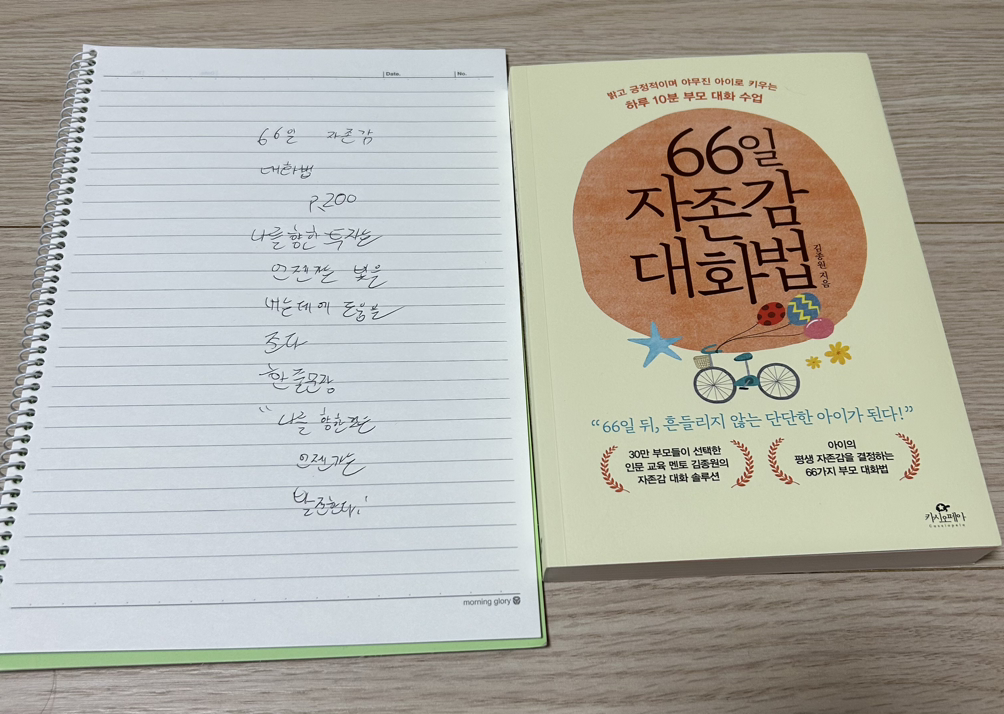 Date.
No.
66일 자존감
대화법
P.200
나를 향한 투자는
언젠간 빛을
내는데에 도움을
준다
한 줄문장
"나를 향한
언젠가는
발전한다!
morning glory
밝고 긍정적이며 야무진 아이로 키우는
하루 10분 부모 대화 수업
66일
자존감
대화법
김종원 지음
“66일 뒤, 흔들리지 않는 단단한 아이가 된다!”
30만 부모들이 선택한
인문 교육 멘토 김종원의
자존감 대화 솔루션
아이의
평생 자존감을 결정하는
66가지 부모 대화법
카시오페아
Cassiopeia